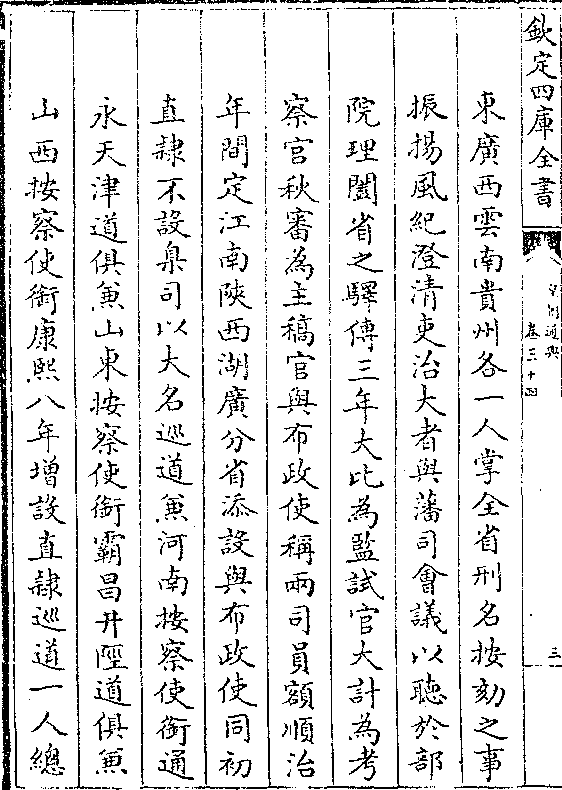 欽定四庫全書
皇朝通典
卷三十四
三
東廣西雲南貴州各一人掌全省刑名按劾之事
振揚風紀澄清吏治大者與藩司會議以聽於部
院理闔省之驛傳三年大比為監試官大計為考
察官秋審為主稿官與布政使稱兩司員額順治
年間定江南陜西湖廣分省添設與布政使同初
直隸不設臬司以大名巡道兼河南按察使銜通
永天津道俱兼山東按察使銜霸昌井陘道俱兼
山西按察使銜康熙八年增設直隸巡道一人總